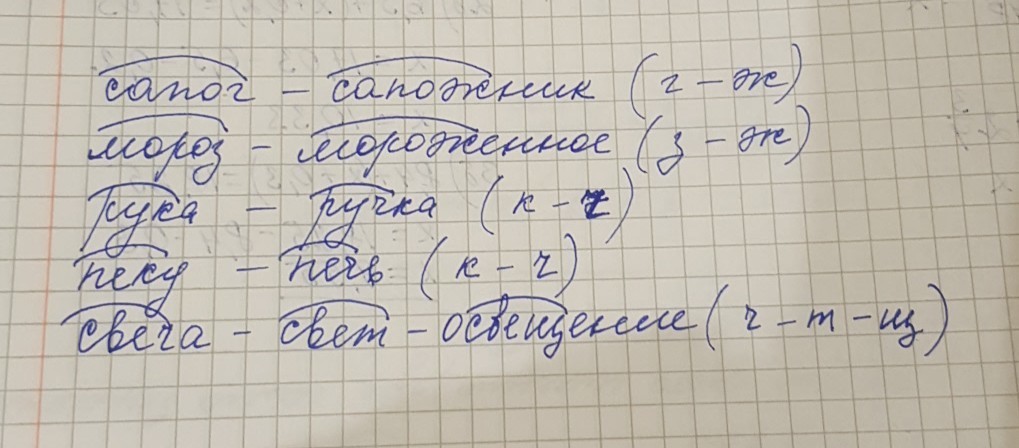 сапог – сапожник (г – ж)
мороз – мороженное (з – ж)
рука – ручка (к – ч)
пеку – печь (к – ч)
свеча – свет – освещение (ч – т – щ)